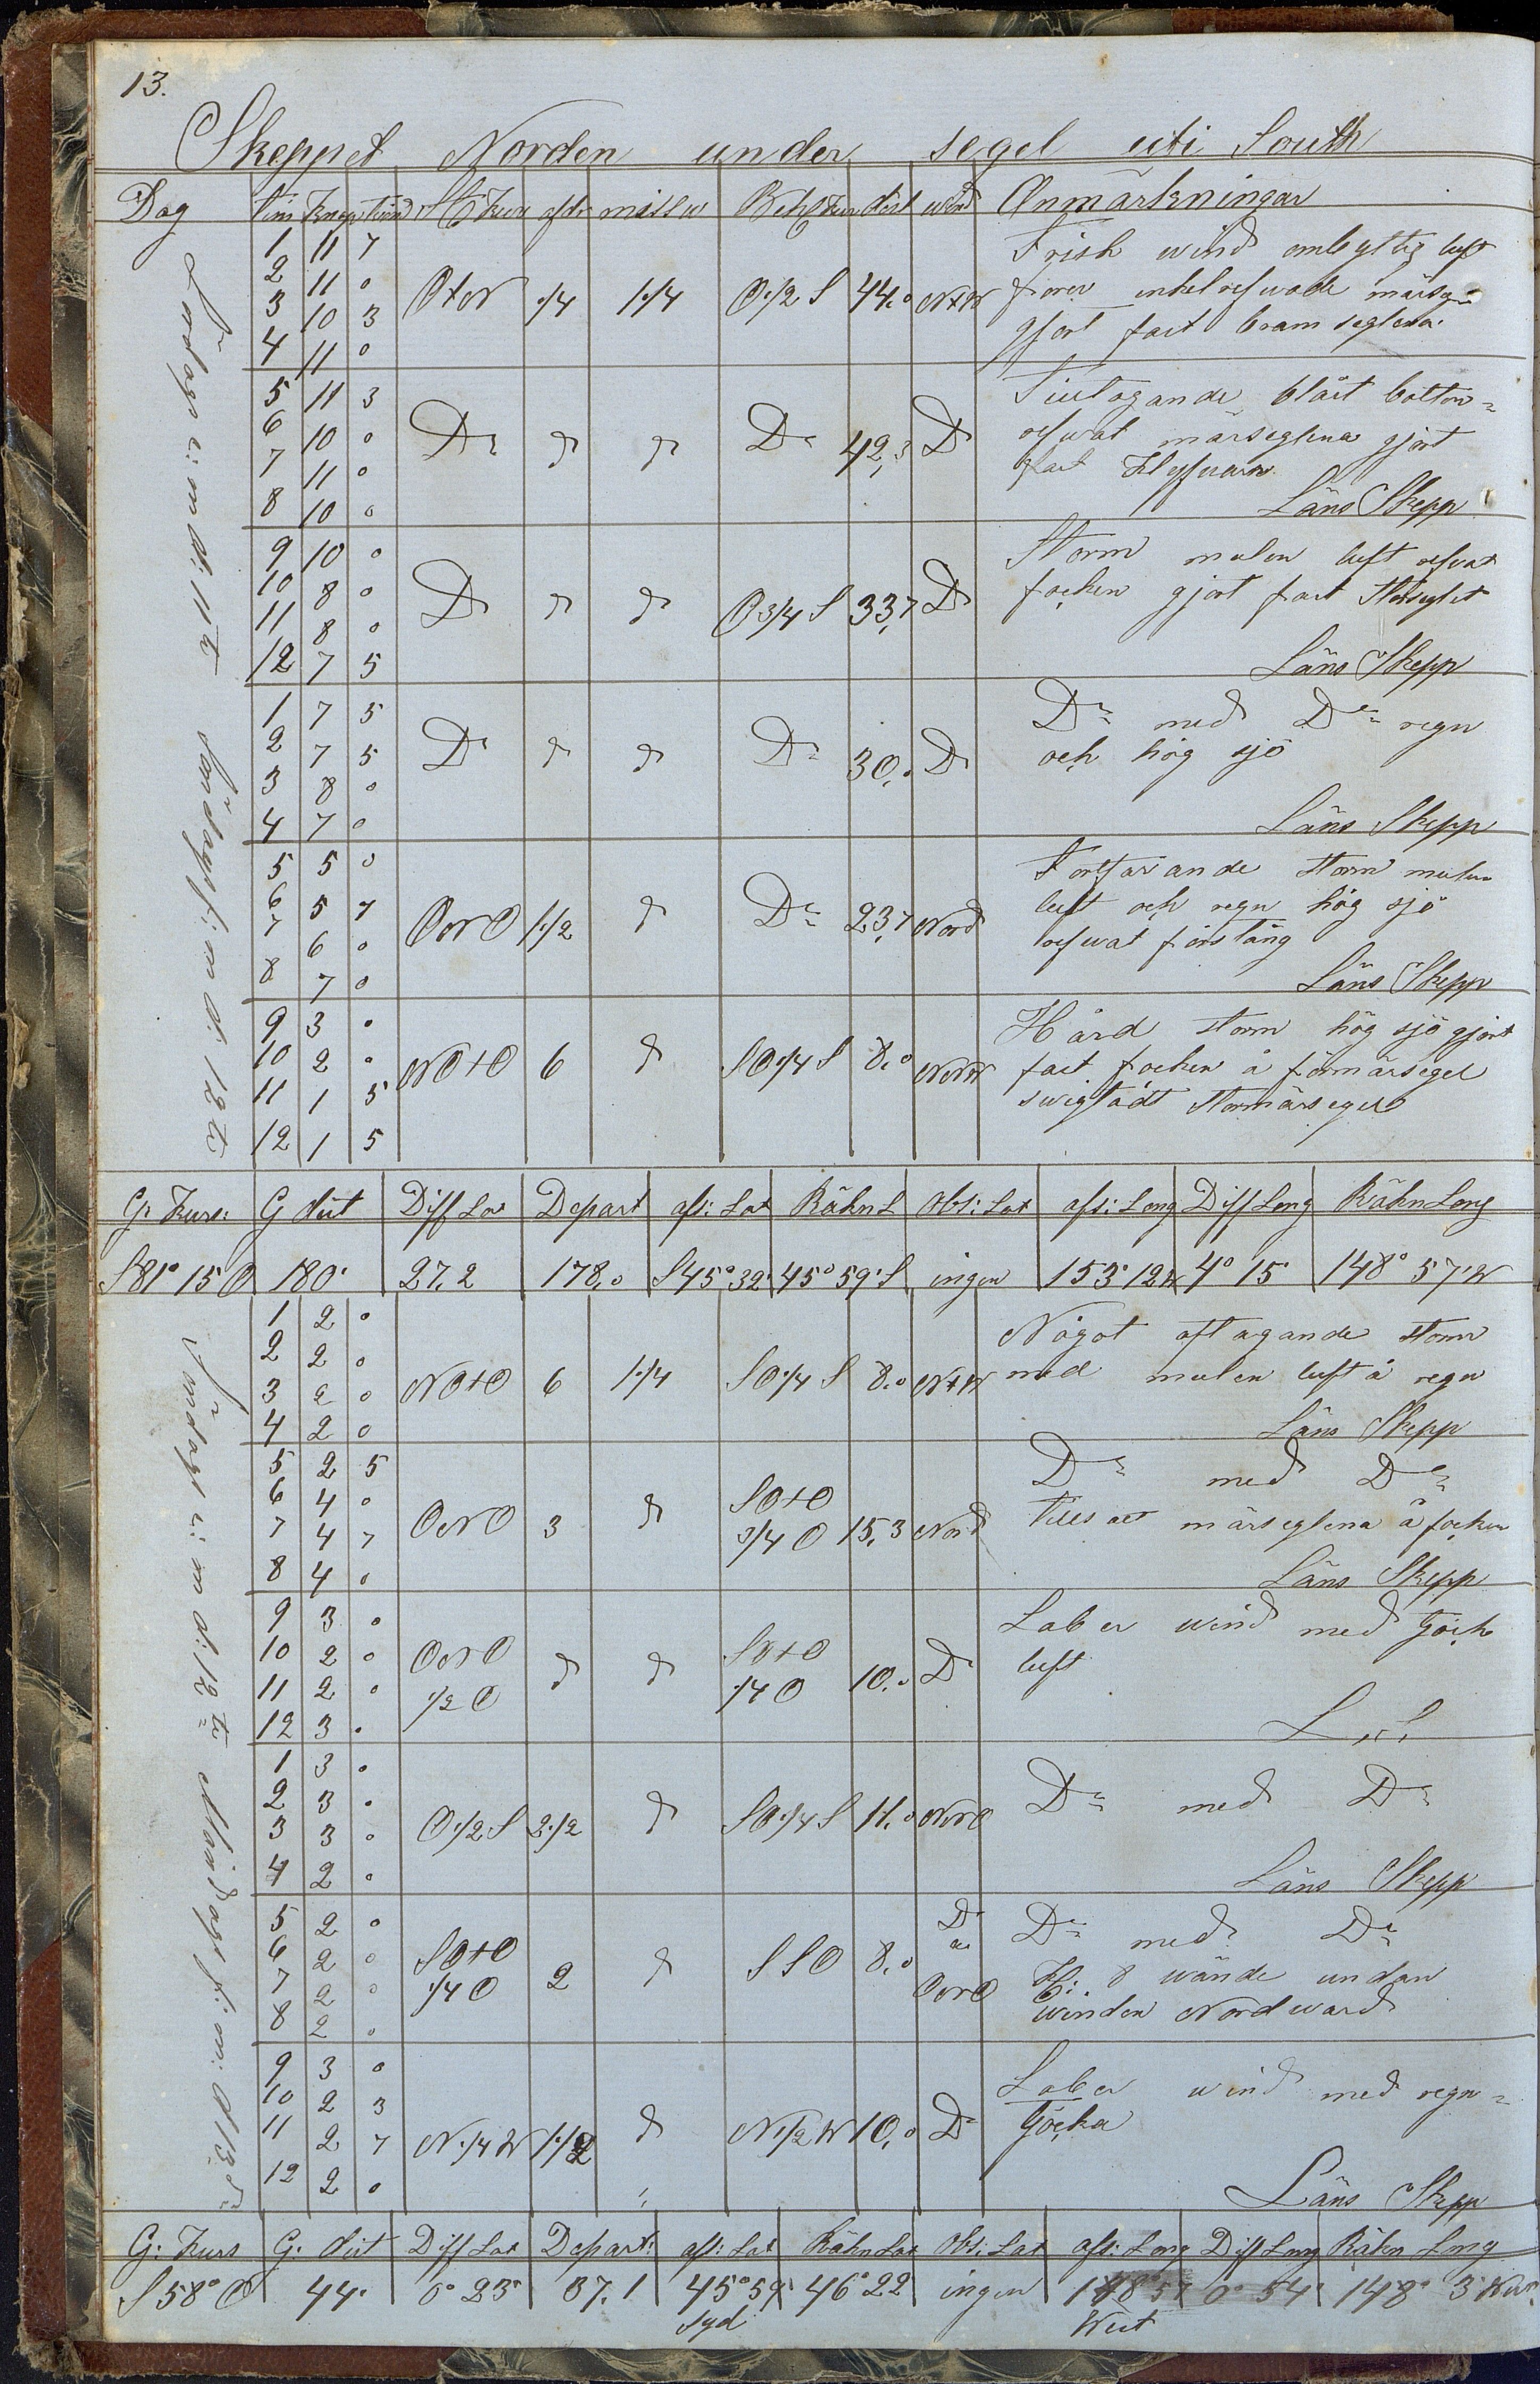 13.
Skeppet Norden under segel uti South
Dag Tim Knop St Kurs afdr missw Beh Kurs dist wind Anmärkningar
Lördags e: m d: 11te
1 11 7
2 11 0
3 10 3
4 11 0
OtN 1/4 1 1/4 O 1/2 S 44,0 NtW
Frisk wind ombytlig luft
förer enkelrefwade märsegel
gjort fast bramseglena.
5 11 3
6 10 0
7 11 0
8 10 0
Do do do Do 42,3 Do
Tilltagande blåst botten=
refwat märseglena gjort
fast Klyfwarn
Läns Skepp
9 10 0
10 8 0
11 8 0
12 7 5
Do do do O 3/4 S 33,7 Do
Storm mulen luft refvat
focken gjort fast Storseglet
Läns Skepp
Söndags f: m d: 12te
1 7 5
2 7 5
3 8 0
4 7 0
Do do do Do 30,0 Do
Do med Do regn
och hög sjö
Läns Skepp
5 5 0
6 5 7
7 6 0
8 7 0
ONO 1 1/2 do Do 23,7 Nord
Fortfarande storm mulen
luft och regn hög sjö
refwat förstäng
Läns Skepp
9 3 0
10 2 0
11 1 5
12 1 5
NOtO 6 do SO 1/4 S 8,0 NNW
Hård storm hög sjö gjort
fast focken å förmärsegel
swigtadt stormärsegel
G: Kurs: G dist Diff Lat Depart afs: Lat Räkn L Obs: Lat afs: Long Diff Long Räkn Long
S 81° 15 O 180' 27,2 178,0 S 45° 32' 45° 59' S ingen 153° 12 W 4° 15' 148° 57' W
Söndags e: m d: 12te
1 2 0
2 2 0
3 2 0
4 2 0
NOtO 6 1 1/4 SO 1/4 S 8,0 NtW
Något aftagande storm
med mulen luft å regn
Läns Skepp
5 2 5
6 4 0
7 4 7
8 4 0
ONO 3 do SOtO
3/4 O 15,3 Nord
Do med Do
tillsatt märseglena å focken
Läns Skepp
9 3 0
10 2 0
11 2 0
12 3 0
ONO
1/2 O do do SOtO
1/4 O 10,0 Do
Laber wind med töcke
luft
L S
Måndags f: m: d 13de
1 3 0
2 3 0
3 3 0
4 2 0
O 1/2 S 2 1/2 do SO 1/4 S 11,0 NNO
Do med Do
Läns Skepp
5 2 0
6 2 0
7 2 0
8 2 0
SOtO
1/4 O 2 do SSO 8,0 Do
ONO
Do med Do
Kl: 8 wände undan
winden Nordward
9 3 0
10 2 3
11 2 7
12 2 0
N 1/4 W 1 1/2 do N 1/2 W 10,0 Do
Laber wind med regn=
töcka
Läns Skepp
G: Kurs G. dist Diff Lat Depart: afs: Lat Räkn Lat Obs: Lat afs: Long Diff Long Räkn Long
S 58° O 44' 0° 23' 37,1 45° 59' 46° 22 ingen 148° 57 0° 54' 148° 3'
Syd West